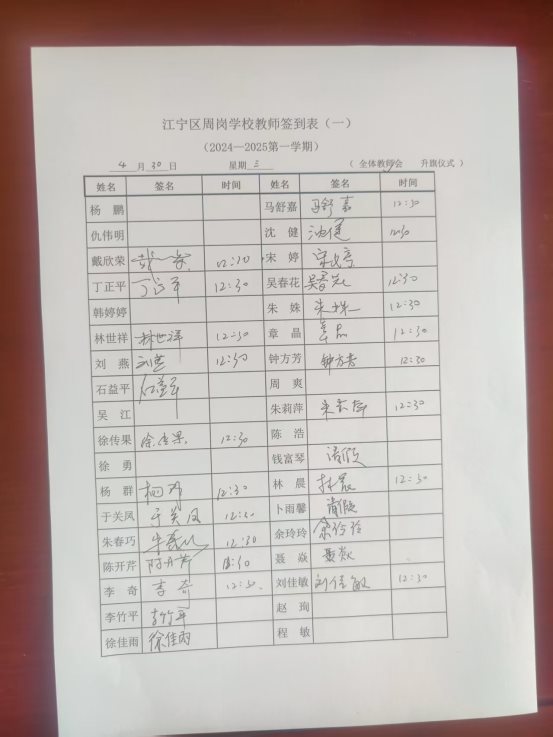 江宁区周岗学校教师签到表（一）
（2024—2025第一学期）
4 月 30 日 星期 三 （ 全体教师会 升旗仪式 ）
姓名 签名 时间 姓名 签名 时间
杨 鹏 马舒嘉 马舒嘉 12:30
仇伟明 沈 健 沈健 12:30
戴欣荣 12:30 宋 婷 宋婷
丁正平 丁正平 12:30 吴春花 吴春花 12:30
韩婷婷 朱 姝 朱姝 12:30
林世祥 林世祥 12:30 章 晶 章晶 12:30
刘 燕 刘燕 12:30 钟方芳 钟方芳 12:30
石益平 石益平 周 爽
吴 江 朱莉萍 朱莉萍 12:30
徐传果 徐传果 12:30 陈 浩
徐 勇 钱富琴 请假
杨 群 杨群 12:30 林 晨 林晨 12:30
于关凤 于关凤 12:30 卜雨馨 请假
朱春巧 12:30 余玲玲 余玲玲
陈开芹 陈开芹 12:30 聂 焱 聂焱
李 奇 李奇 12:30 刘佳敏 刘佳敏 12:30
李竹平 李竹平 赵 珣
徐佳雨 徐佳雨 程 敏